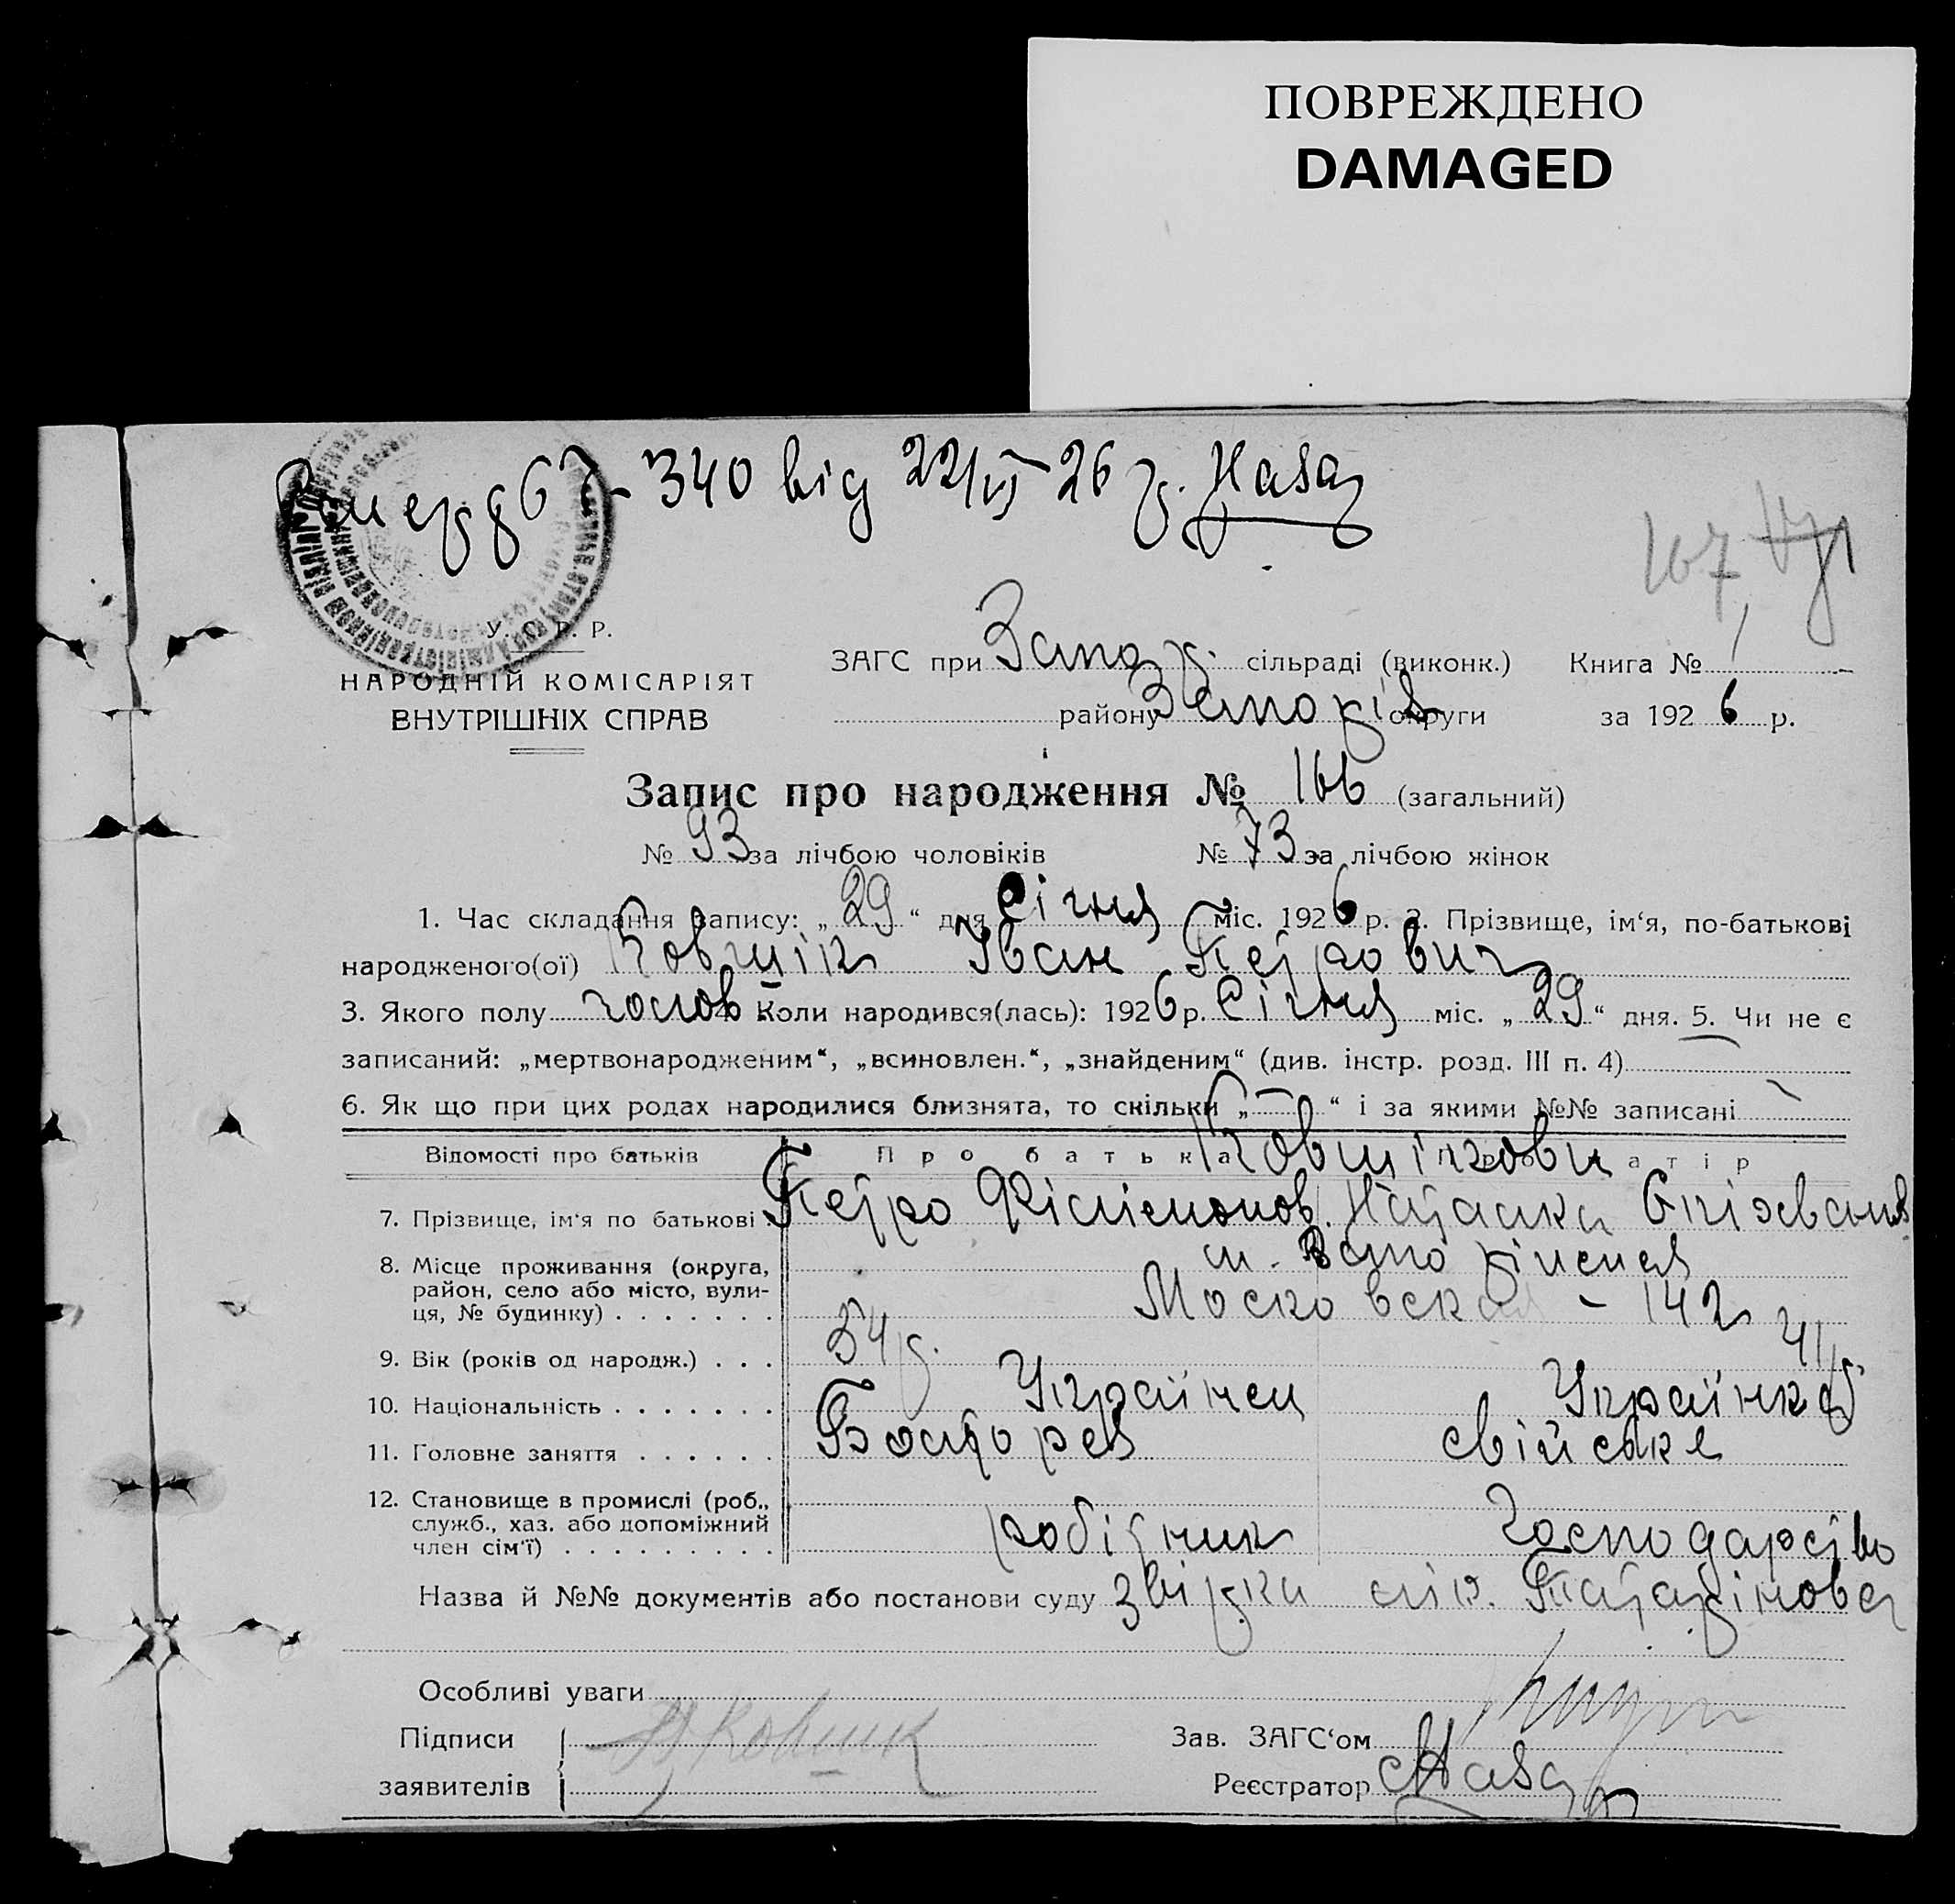 ПОВРЕЖДЕНО
DAMAGED
340 від 22/VI 26 р.
107
У. С. Р. Р.
НАРОДНІЙ КОМІСАРІЯТ
ВНУТРІШНІХ СПРАВ
ЗАГС при Запор. сільраді (виконк.) Книга № 1
району Запоріз округи за 1926 р.
Запис про народження № 166 (загальний)
№ 93 за лічбою чоловіків № 73 за лічбою жінок
1. Час складання запису: „29“ дня Січня міс. 1926 р. 2. Прізвище, ім‘я, по-батькові
народженого(ої) Ковшік Іван Петрович
3. Якого полу чолов 4. Коли народився(лась): 1926 р. Січня міс. „29“ дня. 5. Чи не є
записаний: „мертвонародженим“, „всиновлен.“, „знайденим“ (див. інстр. розд. III п. 4)
6. Як що при цих родах народилися близнята, то скільки „—“ і за якими №№ записані —
Відомості про батьків Про батька Про матір
Ковшікови
7. Прізвище, ім‘я по батькові . Петро Філімонов. Наталка
8. Місце проживання (округа, район, село або місто, вули- ця, № будинку) . . . . . . . м. Запоріжжя
Московская - 142
9. Вік (років од народж.) . . . 54 р. 41 р.
10. Національність . . . . . . . Українец Українка
11. Головне заняття . . . . . . свійське
12. Становище в промислі (роб., служб., хаз. або допоміжний член сім‘ї) . . . . . . . . . робітник господарство
Назва й №№ документів або постанови суду звірки Татарінова
Особливі уваги
Підписи
заявителів
Ковшик
Зав. ЗАГС‘ом
Реєстратор